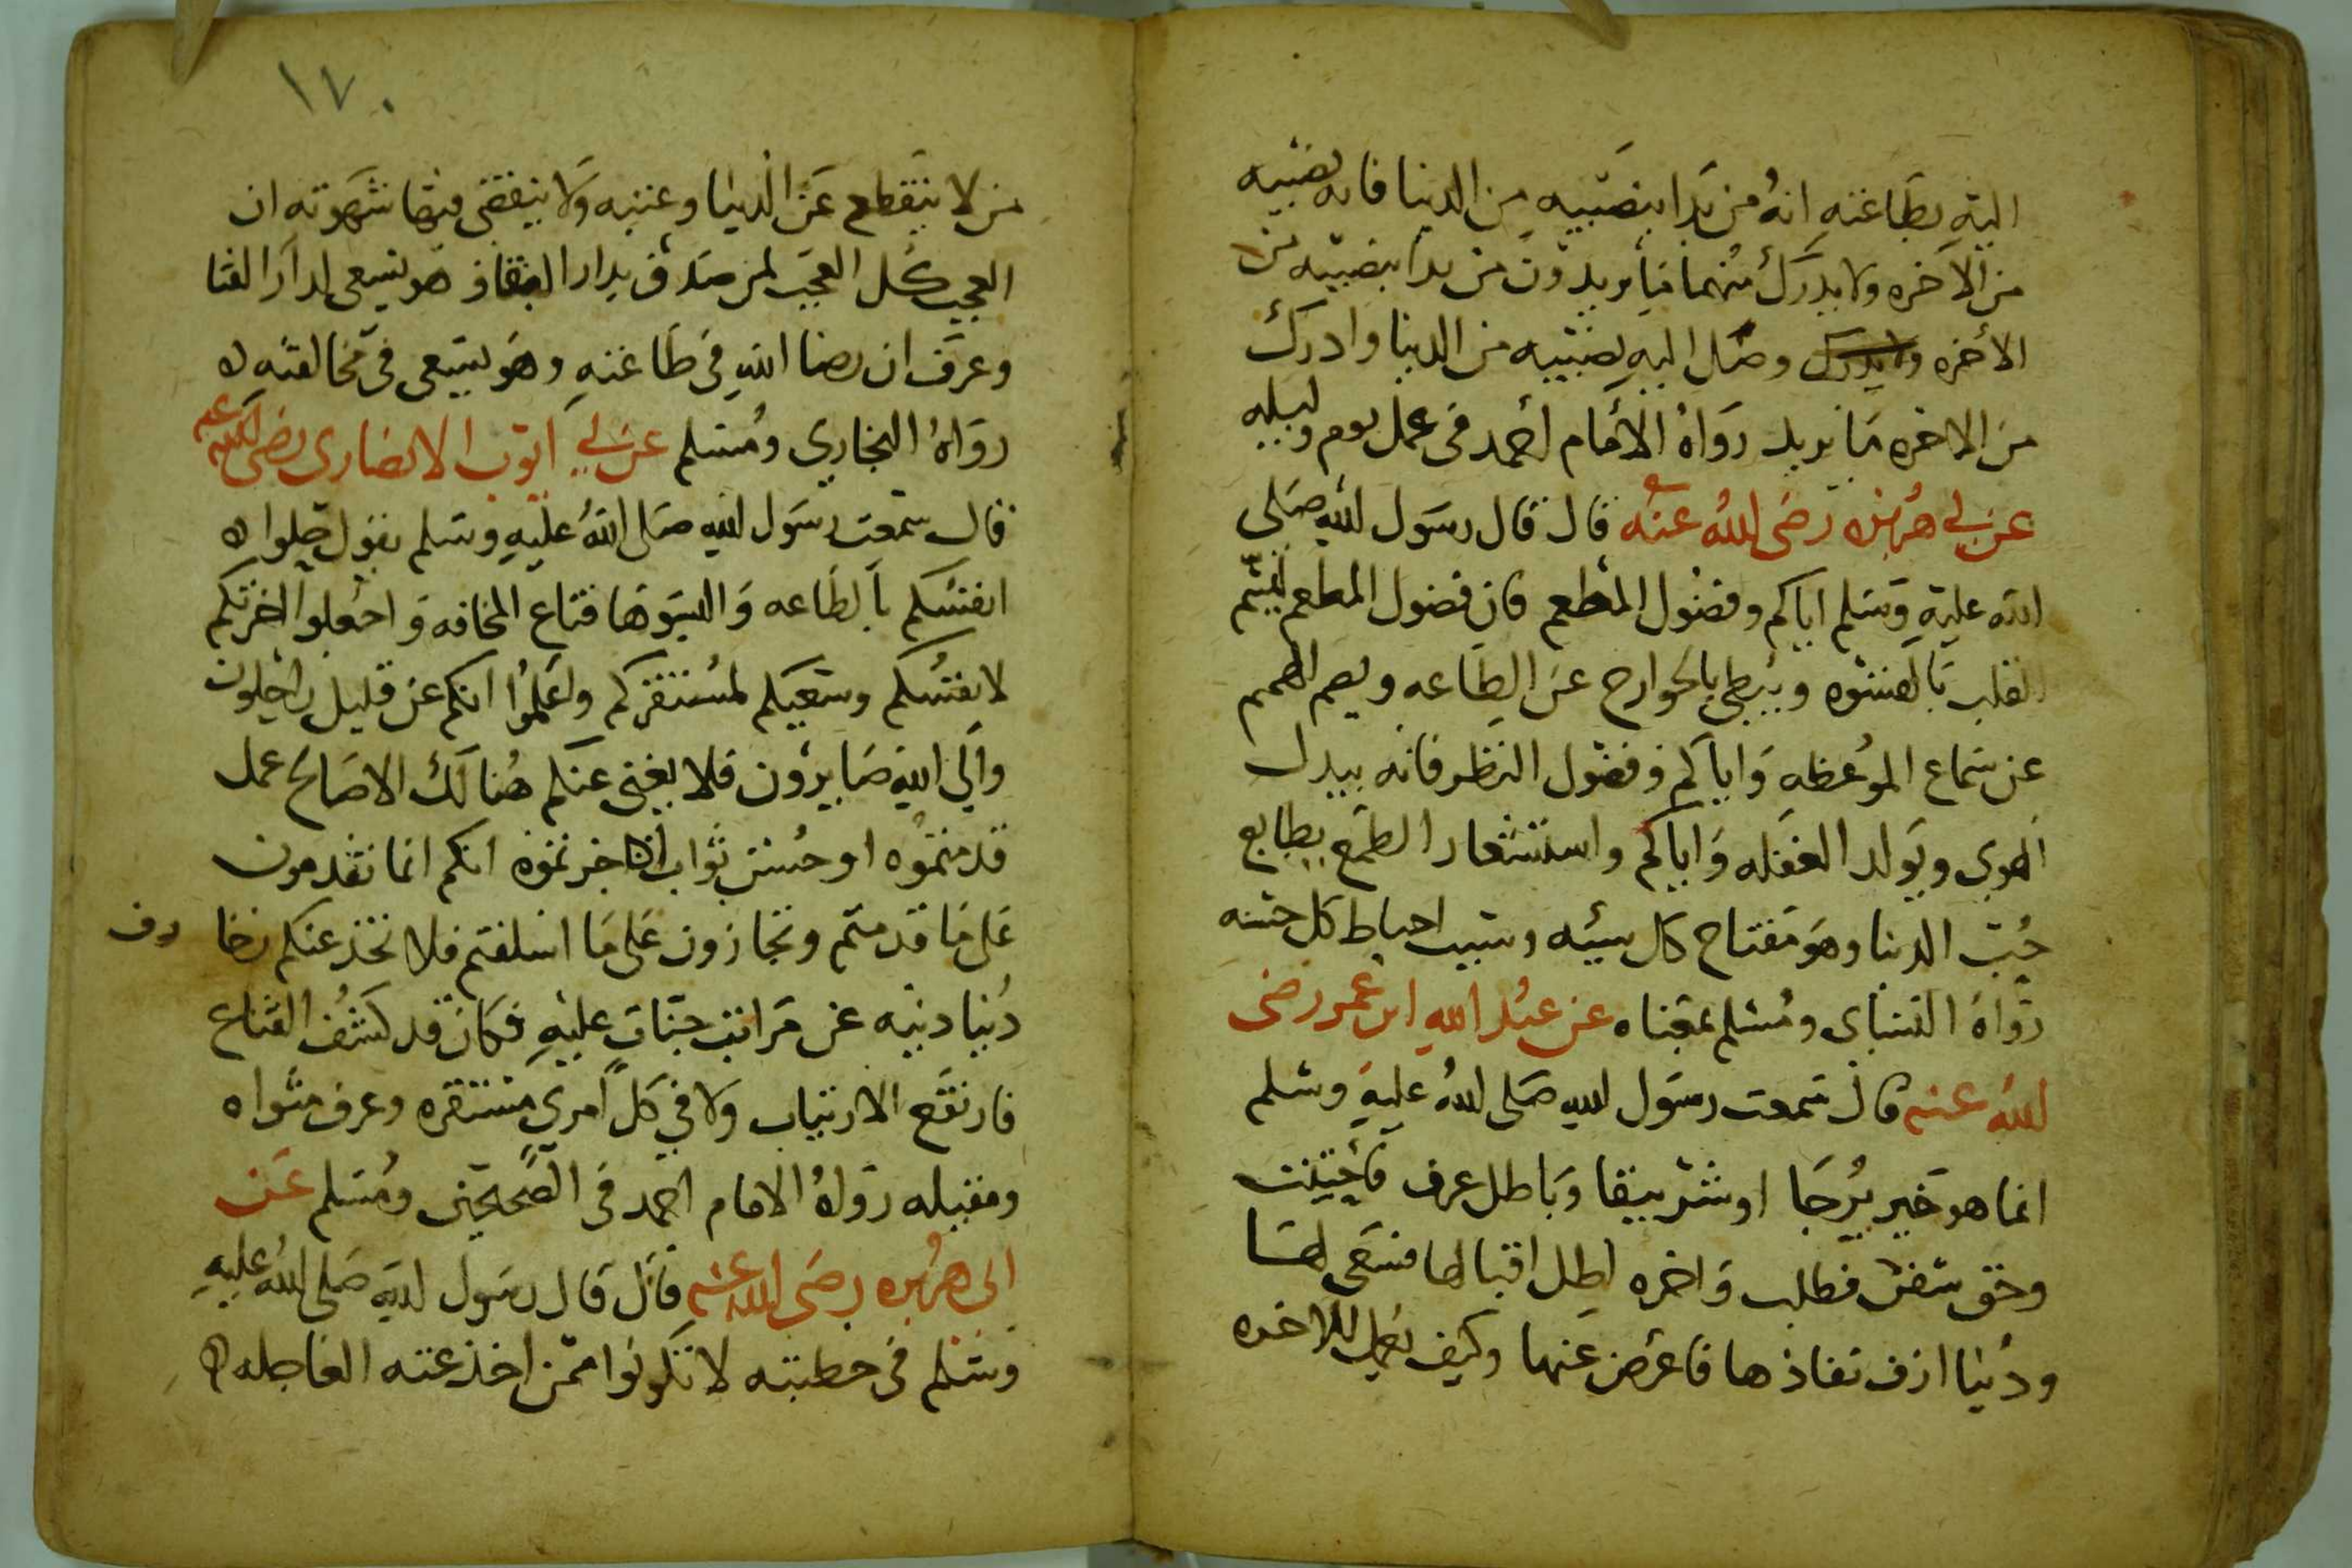 اليه بطاعته انه من بدا بنصيبه من الدنيا فاته نصيبه
من الآخره ولا يدرك منهما ما يريد ون من بدا بنصيبه من
الأخره ولا يدرك وصل اليه نصيبه من الدنيا وادرك
من الاخره ما يريد رواه الأمام أحمد في عمل يوم وليله
عن ابي هريره رضي الله عنه قال قال رسول الله صلى
الله عليه وسلم اياكم وفضول المطعم فان فضول المطعم يسم
القلب بالقسوه ويبطي بالجوارح عن الطاعه ويصم الهمم
عن سماع الموعظه واياكم وفضول النظر فانه يبدل
الهوى ويولد الغفله واياكم واستشعار الطمع بطابع
حب الدنيا وهو مفتاح كل سيئه وسبب احباط كل حسنه
رواه النساى ومسلم بمعناه عن عبد الله ابن عمر رضي
الله عنه قال سمعت رسول الله صلى الله عليه وسلم
انما هو خير يرجا او شر يتقا وباطل عرف فأجتنب
وحق تيقن فطلب واخره اطل اقبالها فسعى لها
ودنيا ازف نفاذها فاعرض عنها وكيف يعمل للاخره
١٧٠
من لا ينقطع عن الدنيا رغبته ولا ينقضى فيها شهوته ان
العجب كل العجب لمن صدق بدار البقا وهو يسعى لدار الفنا
وعرف ان رضا الله في طاعته وهو يسعى في مخالفته
رواه البخاري ومسلم عن ابي ايوب الانصاري رضي الله عنه
قال سمعت رسول الله صلى الله عليه وسلم يقول حلوا
انفسكم بالطاعه والبسوها قناع المخافه واجعلوا اخرتكم
لانفسكم وسعيكم لمستقركم واعلموا انكم عن قليل راحلون
والي الله صايرون فلا يغني عنكم هنالك الا صالح عمل
قدمتموه او حسن ثواب اخرتموه انكم انما تقدمون
على ما قدمتم وتجازون على ما اسلفتم فلا تخدعنكم زخا رف
دنيا دنيه عن مراتب جنات عليه فكان قد كشف القناع
فارتفع الارتياب ولاقي كل امري مستقره وعرف مثواه
ومقيله رواه الامام احمد في الصحيحين ومسلم عن
ابي هريره رضي الله عنه قال قال رسول الله صلى الله عليه
وسلم في خطبته لا تكونوا ممن اخذعته العاجله